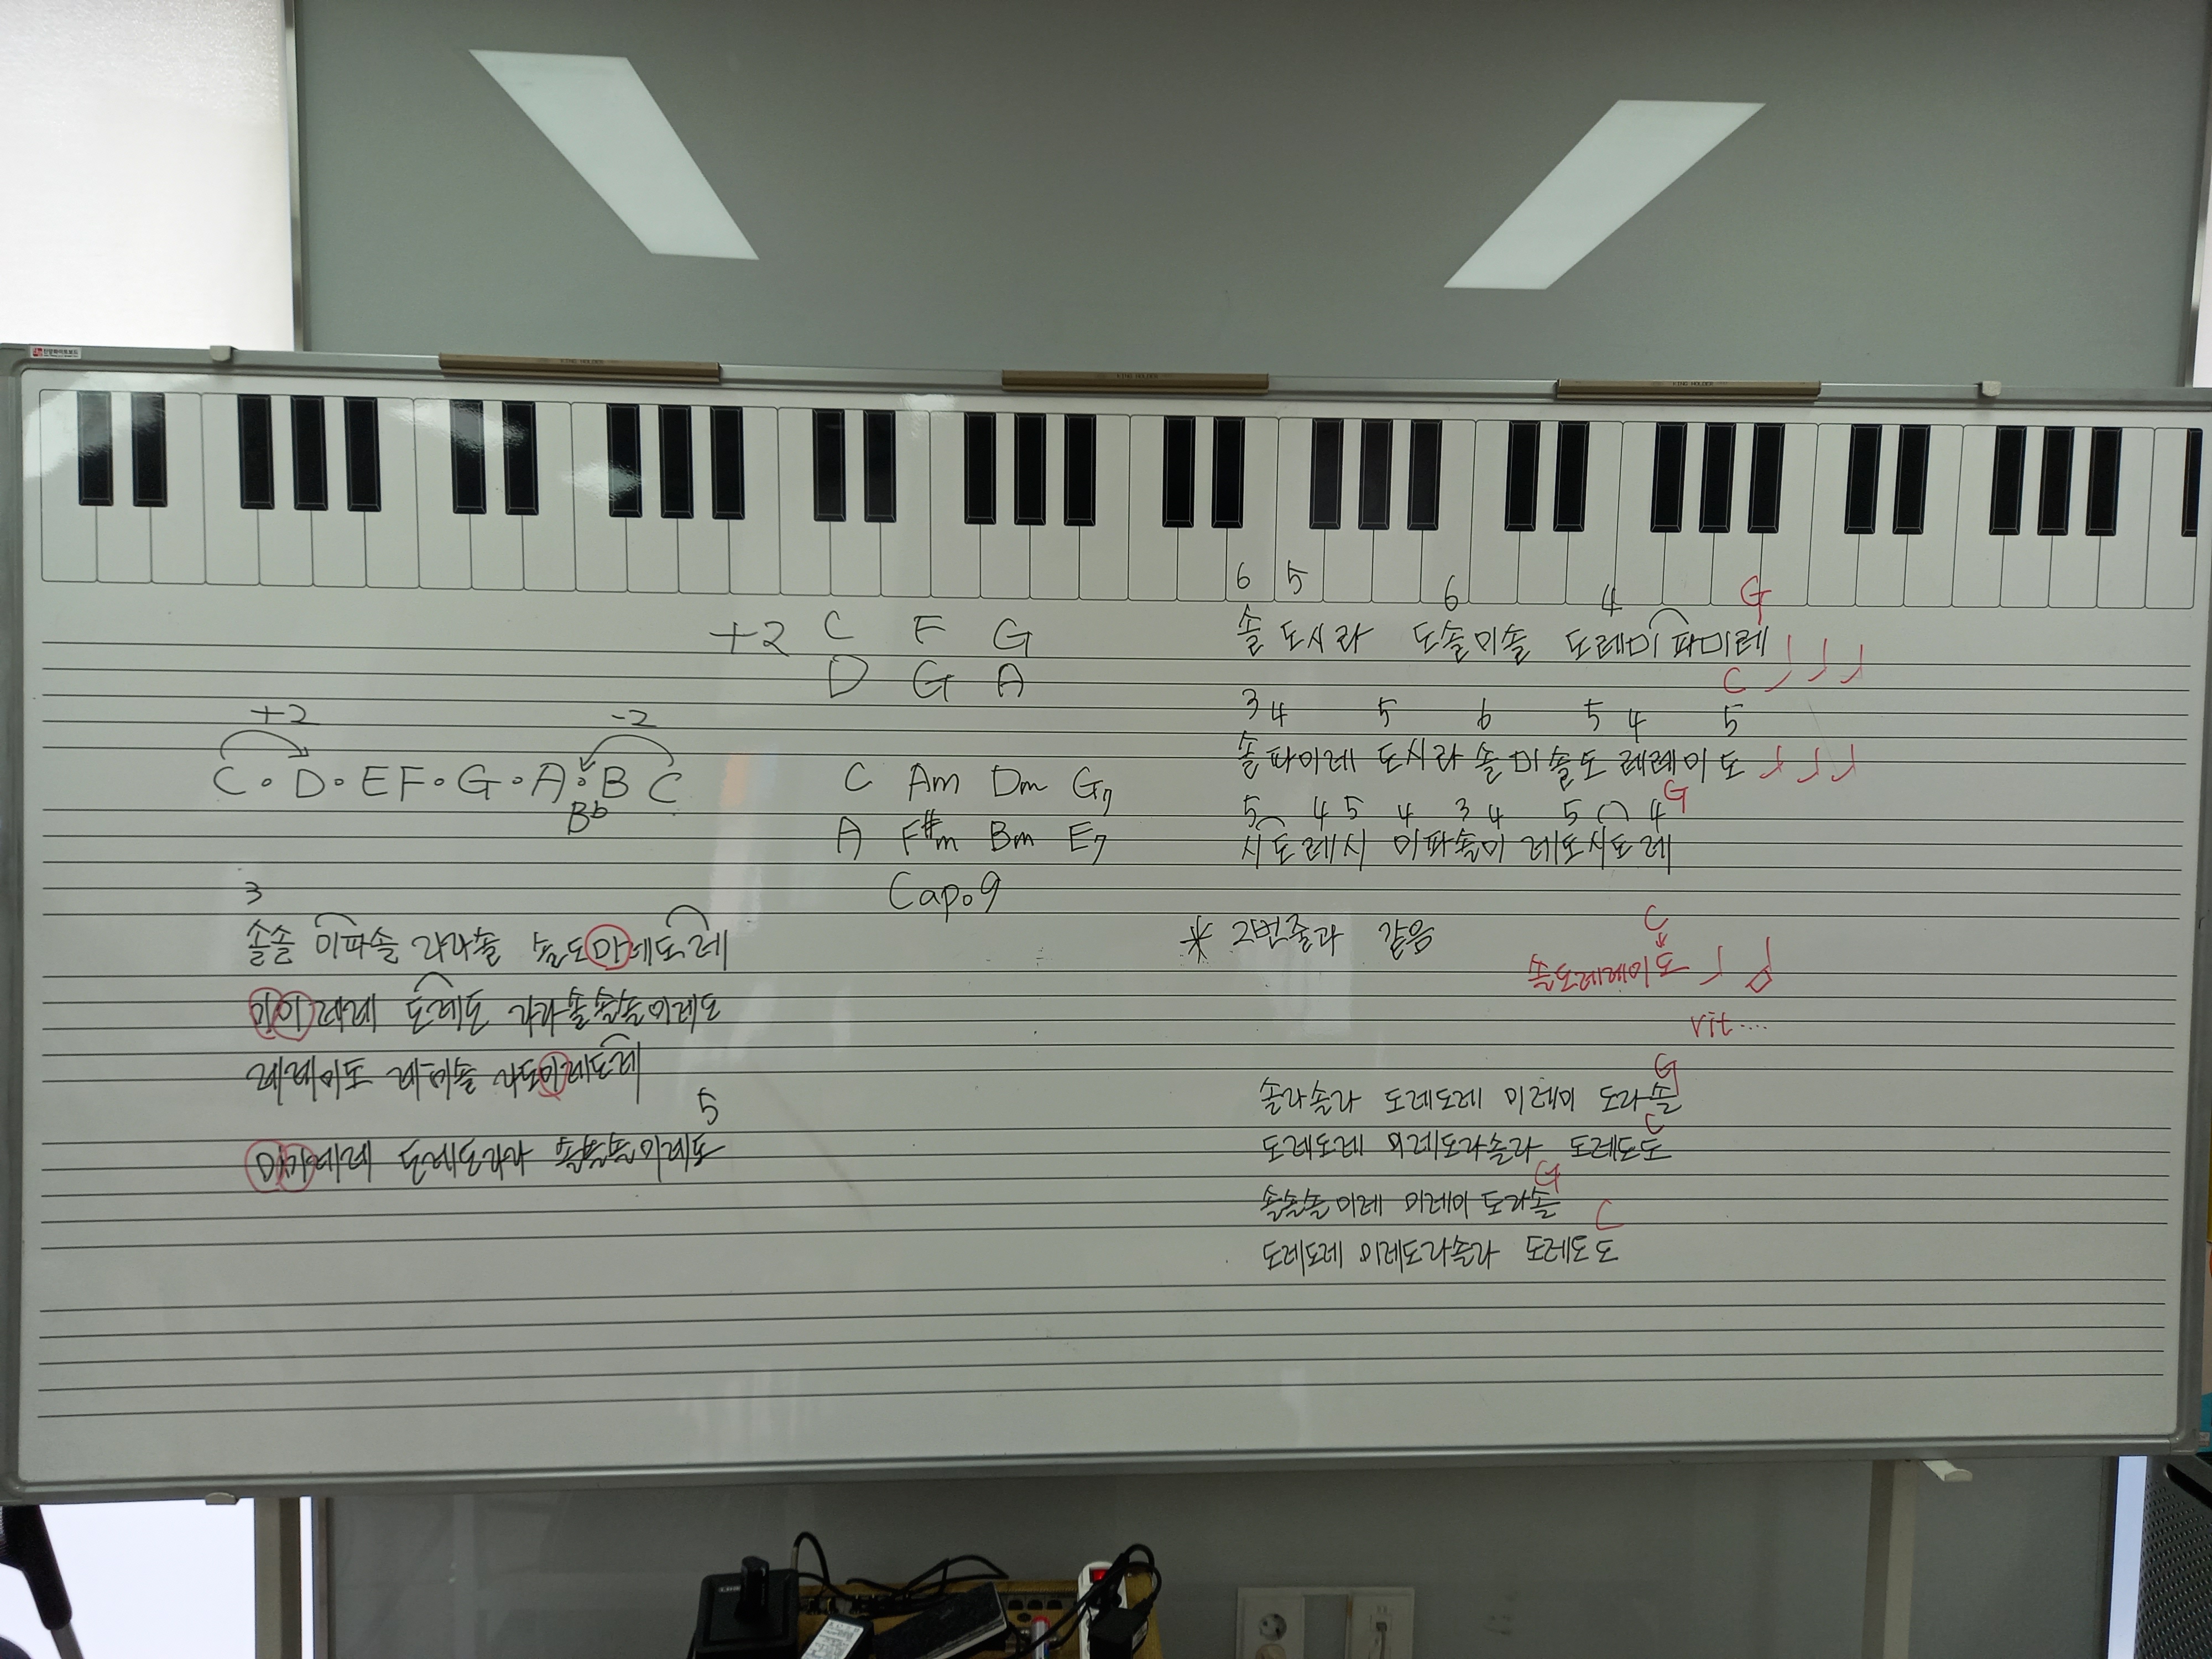 KING HOLDER
KING HOLDER
KING HOLDER
+2 C F G
D G A
+2 -2
C · D · E F · G · A · B C
Bb
C Am Dm G7
A F#m Bm E7
Capo 9
3
솔솔 미파솔 라라솔 솔도미레도레
미미레레 도레도 라라솔솔솔미레도
레레미도 레미솔 라도미레도레
5
미미레레 도레도라라 솔솔솔미레도
6 5 6 4 G
솔 도시라 도솔미솔 도레미파미레 ♩ ♩ ♩
C
3 4 5 6 5 4 5
솔파미레 도시라솔 미솔도 레레미도 ♩ ♩ ♩
G
5 4 5 4 3 4 5 4
시도레시 미파솔미 레도시도레
* 2번줄과 같음
C
솔도레레미도 ♩
rit....
G
솔라솔라 도레도레 미레미 도라솔
C
도레도레 미레도라솔라 도레도도
G
솔솔솔미레 미레미 도라솔
C
도레도레 미레도라솔라 도레도도
LINE